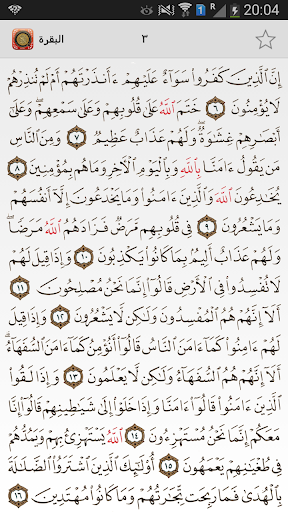 20:04
البقرة ٣
إِنَّ ٱلَّذِينَ كَفَرُوا۟ سَوَآءٌ عَلَيْهِمْ ءَأَنذَرْتَهُمْ أَمْ لَمْ تُنذِرْهُمْ
لَا يُؤْمِنُونَ ٦ خَتَمَ ٱللَّهُ عَلَىٰ قُلُوبِهِمْ وَعَلَىٰ سَمْعِهِمْ ۖ وَعَلَىٰٓ
أَبْصَٰرِهِمْ غِشَٰوَةٌ ۖ وَلَهُمْ عَذَابٌ عَظِيمٌ ٧ وَمِنَ ٱلنَّاسِ
مَن يَقُولُ ءَامَنَّا بِٱللَّهِ وَبِٱلْيَوْمِ ٱلْءَاخِرِ وَمَا هُم بِمُؤْمِنِينَ ٨
يُخَٰدِعُونَ ٱللَّهَ وَٱلَّذِينَ ءَامَنُوا۟ وَمَا يَخْدَعُونَ إِلَّآ أَنفُسَهُمْ
وَمَا يَشْعُرُونَ ٩ فِى قُلُوبِهِم مَّرَضٌ فَزَادَهُمُ ٱللَّهُ مَرَضًا ۖ
وَلَهُمْ عَذَابٌ أَلِيمٌۢ بِمَا كَانُوا۟ يَكْذِبُونَ ١٠ وَإِذَا قِيلَ لَهُمْ
لَا تُفْسِدُوا۟ فِى ٱلْأَرْضِ قَالُوٓا۟ إِنَّمَا نَحْنُ مُصْلِحُونَ ١١
أَلَآ إِنَّهُمْ هُمُ ٱلْمُفْسِدُونَ وَلَٰكِن لَّا يَشْعُرُونَ ١٢ وَإِذَا قِيلَ
لَهُمْ ءَامِنُوا۟ كَمَآ ءَامَنَ ٱلنَّاسُ قَالُوٓا۟ أَنُؤْمِنُ كَمَآ ءَامَنَ ٱلسُّفَهَآءُ ۗ
أَلَآ إِنَّهُمْ هُمُ ٱلسُّفَهَآءُ وَلَٰكِن لَّا يَعْلَمُونَ ١٣ وَإِذَا لَقُوا۟
ٱلَّذِينَ ءَامَنُوا۟ قَالُوٓا۟ ءَامَنَّا وَإِذَا خَلَوْا۟ إِلَىٰ شَيَٰطِينِهِمْ قَالُوٓا۟ إِنَّا
مَعَكُمْ إِنَّمَا نَحْنُ مُسْتَهْزِءُونَ ١٤ ٱللَّهُ يَسْتَهْزِئُ بِهِمْ وَيَمُدُّهُمْ
فِى طُغْيَٰنِهِمْ يَعْمَهُونَ ١٥ أُو۟لَٰٓئِكَ ٱلَّذِينَ ٱشْتَرَوُا۟ ٱلضَّلَٰلَةَ
بِٱلْهُدَىٰ فَمَا رَبِحَت تِّجَٰرَتُهُمْ وَمَا كَانُوا۟ مُهْتَدِينَ ١٦